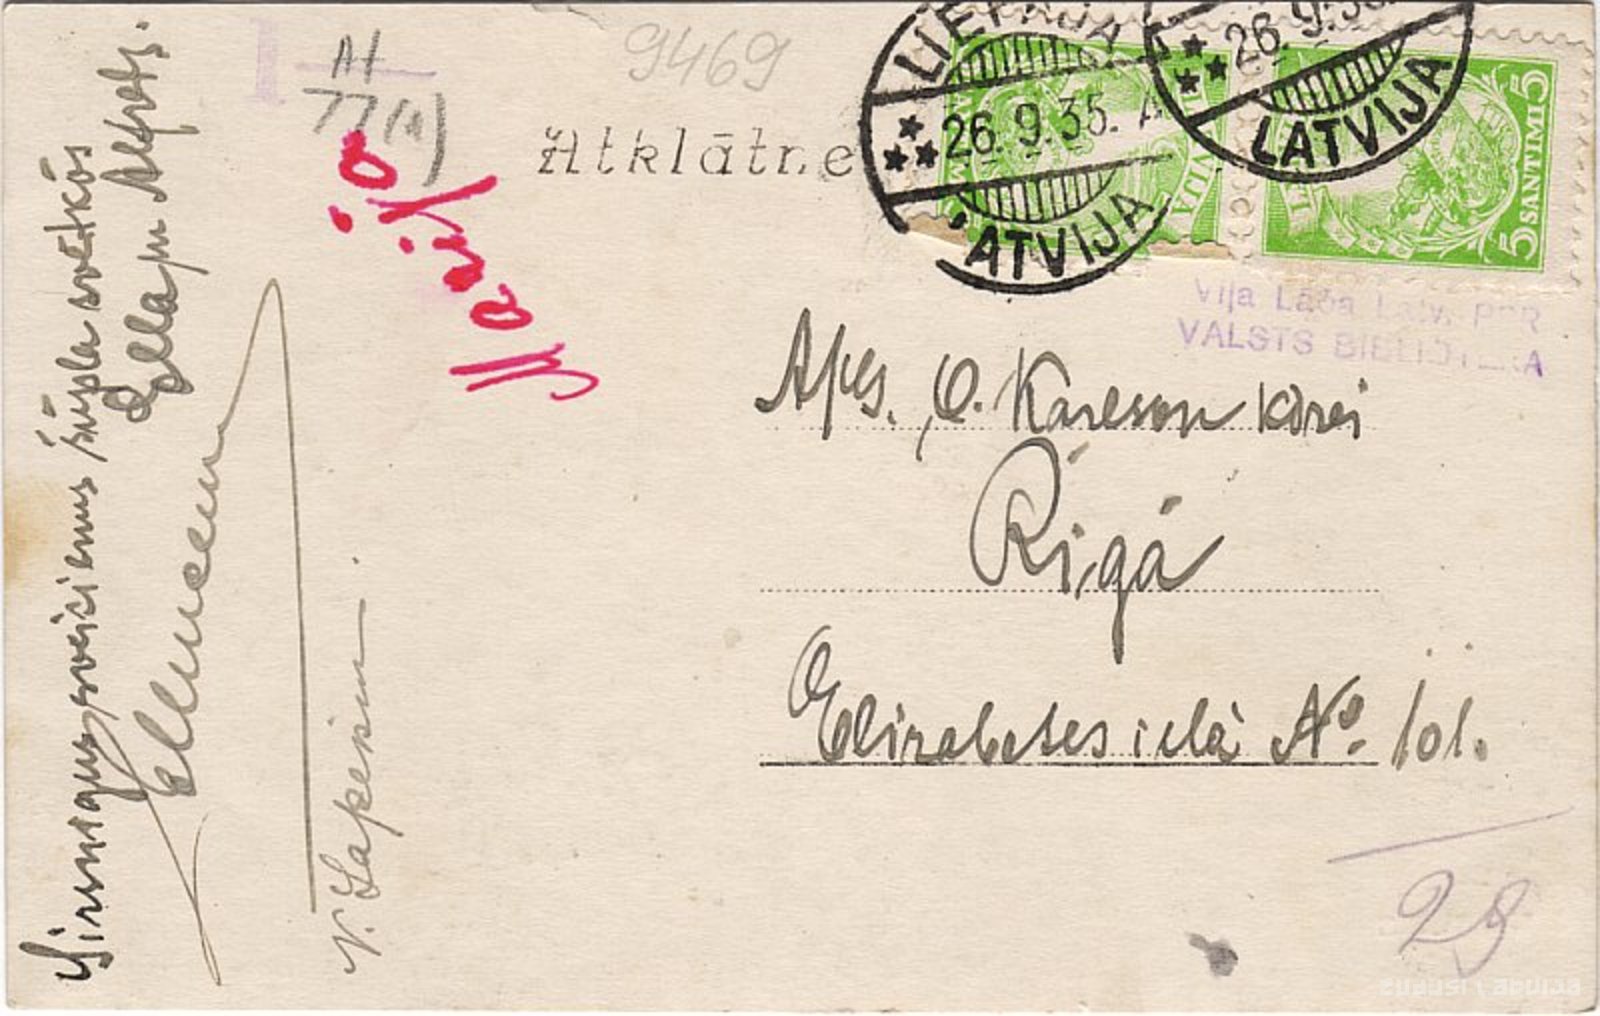 9469
A+
77(a)
Atklātne
LIEPĀJA
26.9.35. A
LATVIJA
26.9.35.
LATVIJA
5 SANTIMI 5
Viļa Lāča Latv. PSR
VALSTS BIBLIOTĒKA
Sirsnīgus sveicienus šūpla svētkos
Ella un Alfreds.
N. Lapeniņ
Apes. O. Karlson kdzei
Rīgā
Elizabetes ielā № 101.
28
zudusi Latvija